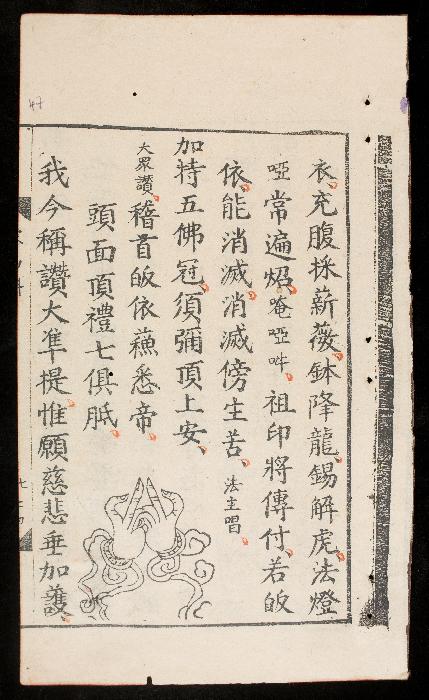 衣、充腹採薪薇、鉢降龍、錫解虎、法燈
啞常遍炤、唵啞吽、祖印將傳付、若皈
依、能消滅、消滅傍生苦、法主唱、
加持五佛冠、須彌頂上安、
大眾讚、稽首皈依蘓悉帝
頭面頂禮七俱胝、
我今稱讚大準提、惟願慈悲垂加護、
47